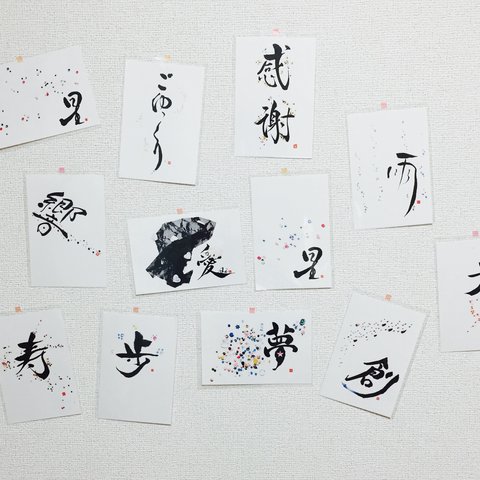 星
ごゆっくり
感
謝
雨
響
愛
星
寿
歩
夢
創